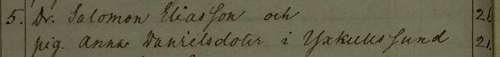 5. Dr. Salomon Eliasson och 26
pig. Anna Danielsdoter i Yxkullssund 21